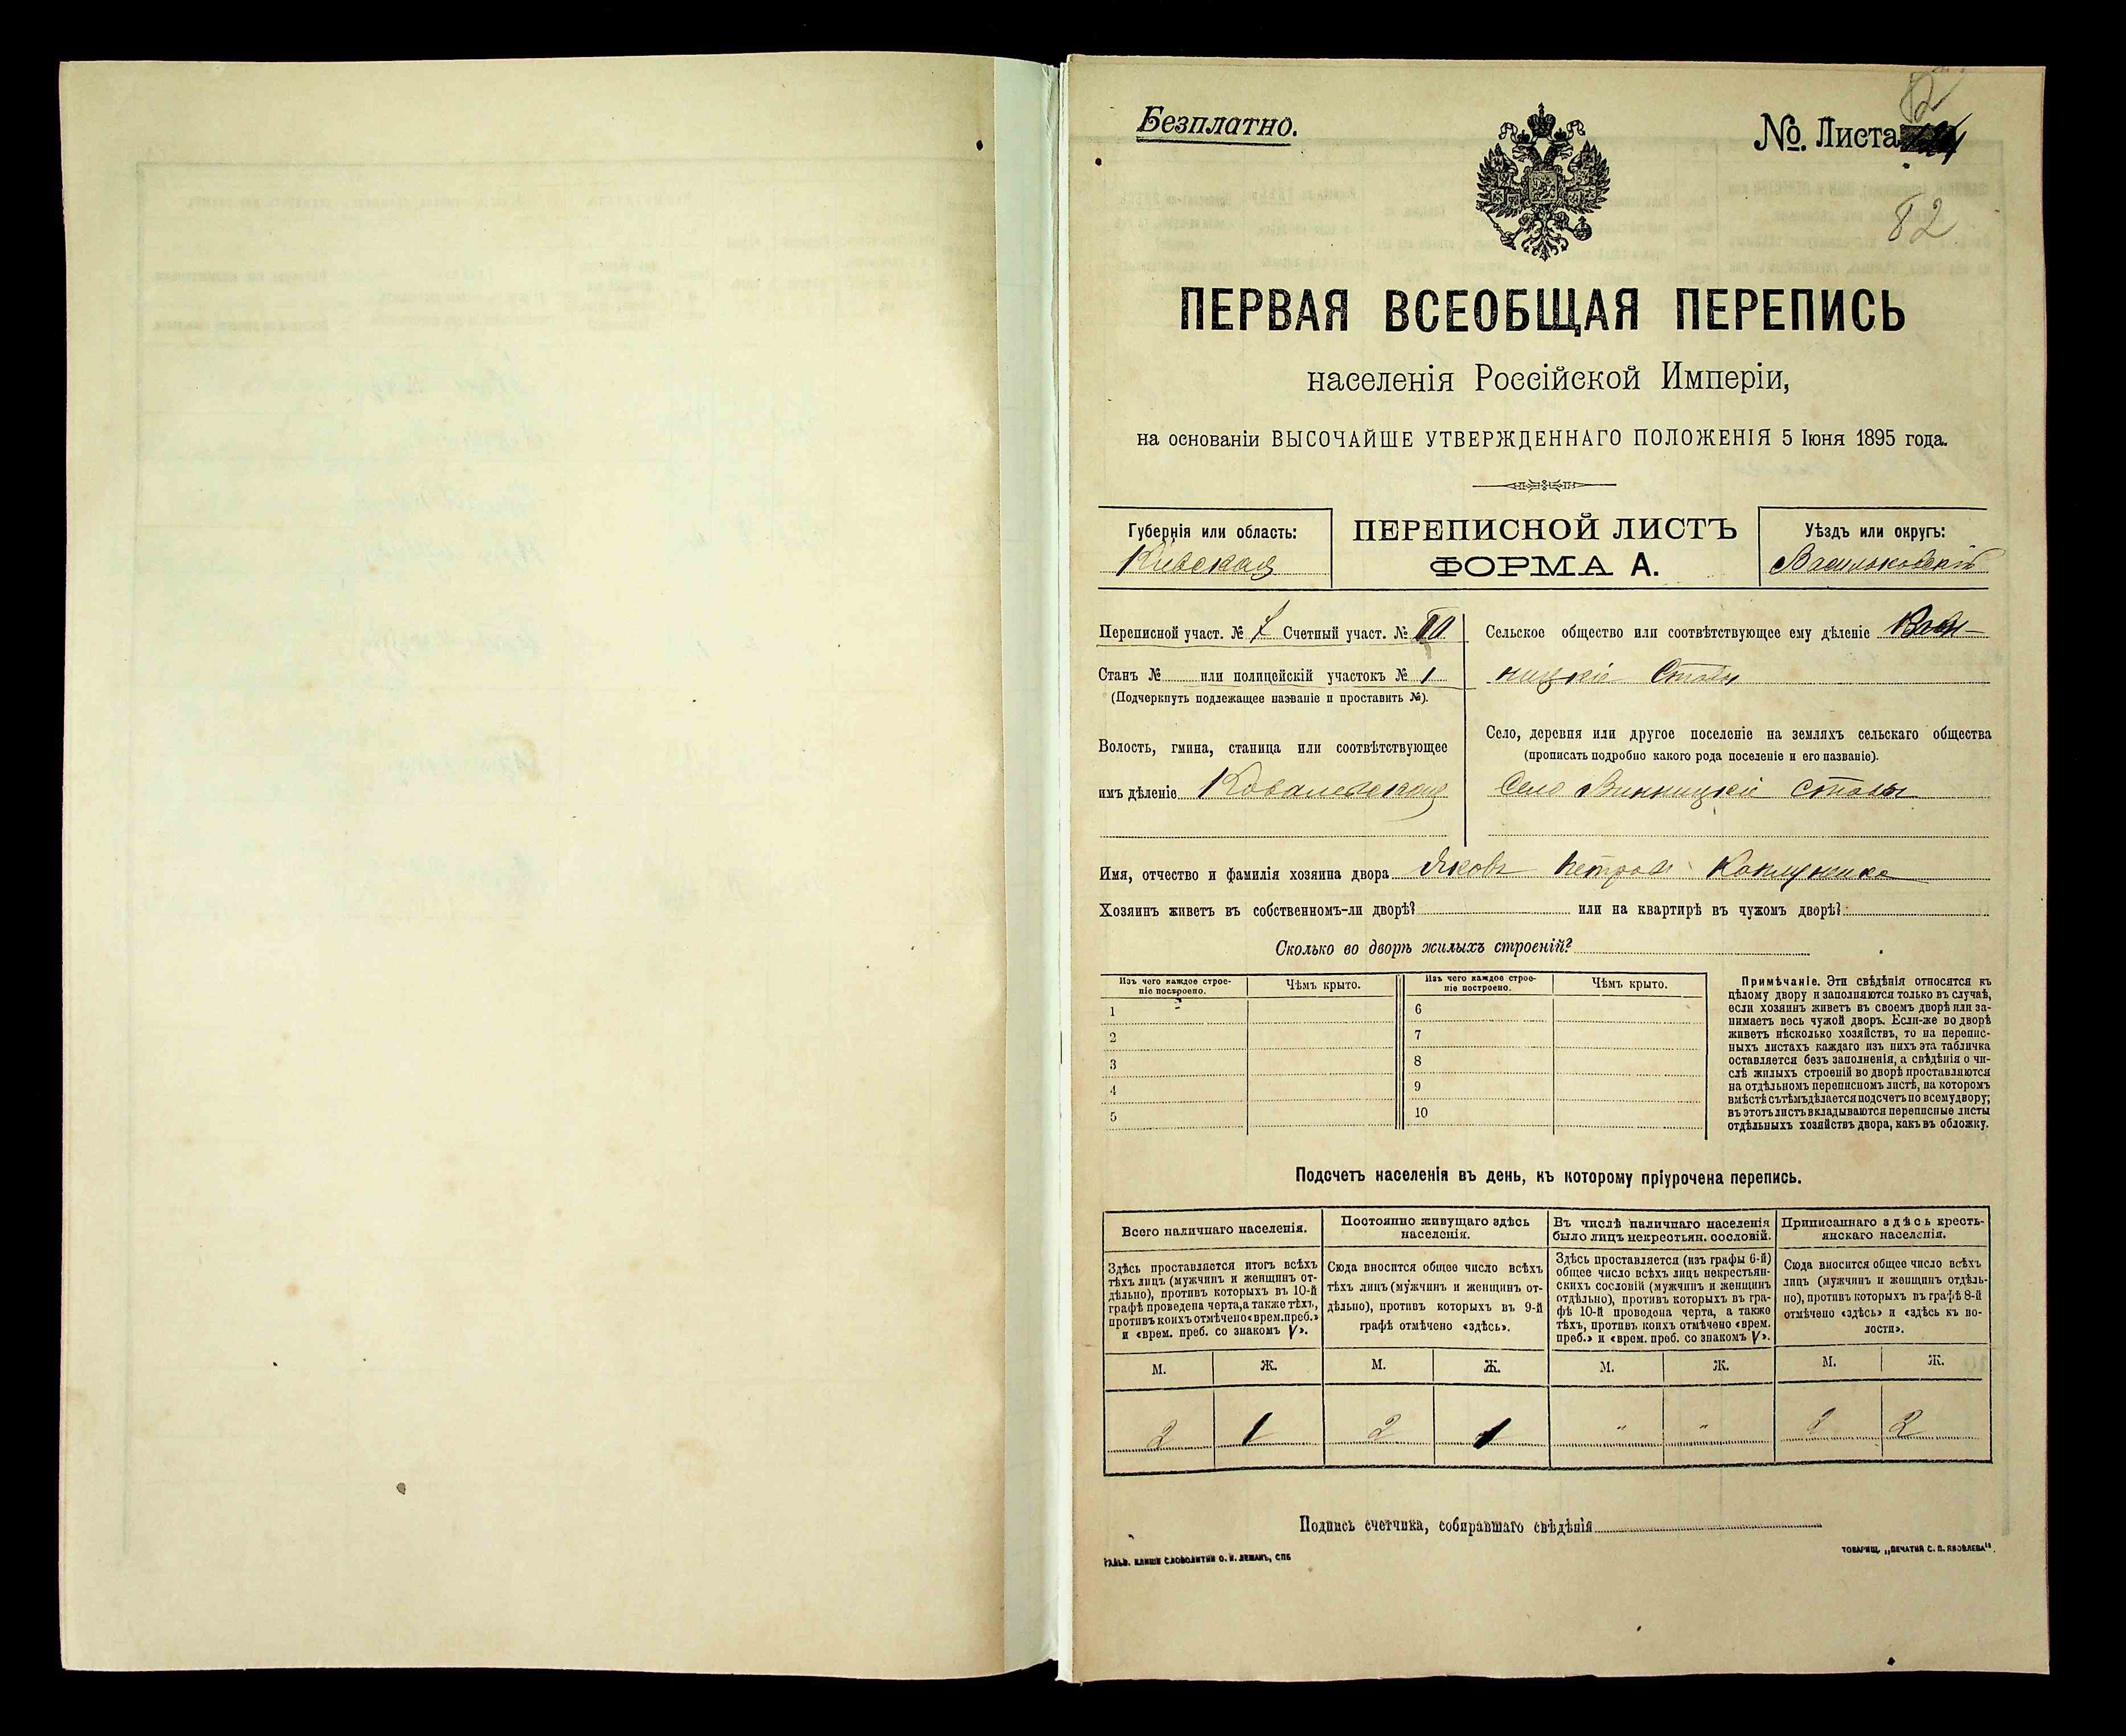 Безплатно.
№. Листа
82
ПЕРВАЯ ВСЕОБЩАЯ ПЕРЕПИСЬ
населенія Россійской Имперіи,
на основаніи ВЫСОЧАЙШЕ УТВЕРЖДЕННАГО ПОЛОЖЕНІЯ 5 Іюня 1895 года.
Губернія или область:
Кіевская
ПЕРЕПИСНОЙ ЛИСТЪ
ФОРМА А.
Уѣздъ или округъ:
Васильковскій
Переписной участ. № Счетный участ. №
Станъ № или полицейскій участокъ № 1
(Подчеркнуть подлежащее названіе и проставить №).
Волость, гмина, станица или соотвѣтствующее
имъ дѣленіе Ковалевская
Сельское общество или соотвѣтствующее ему дѣленіе Вин-
ницкіе Ставы
Село, деревня или другое поселеніе на земляхъ сельскаго общества
(прописать подробно какого рода поселеніе и его названіе).
Село Винницкіе Ставы
Имя, отчество и фамилія хозяина двора Яковъ Петровъ
Хозяинъ живетъ въ собственномъ-ли дворѣ? или на квартирѣ въ чужомъ дворѣ?
Сколько во дворѣ жилыхъ строеній?
Изъ чего каждое строе-
ніе построено.
Чѣмъ крыто.
Изъ чего каждое строе-
ніе построено.
Чѣмъ крыто.
1
2
3
4
5
6
7
8
9
10
Примѣчаніе. Эти свѣдѣнія относятся къ
цѣлому двору и заполняются только въ случаѣ,
если хозяинъ живетъ въ своемъ дворѣ или за-
нимаетъ весь чужой дворъ. Если-же во дворѣ
живетъ нѣсколько хозяйствъ, то на перепис-
ныхъ листахъ каждаго изъ нихъ эта табличка
оставляется безъ заполненія, а свѣдѣнія о чи-
слѣ жилыхъ строеній во дворѣ проставляются
на отдѣльномъ переписномъ листѣ, на которомъ
вмѣстѣ съ тѣмъ дѣлается подсчетъ по всему двору;
въ этотъ листъ вкладываются переписные листы
отдѣльныхъ хозяйствъ двора, какъ въ обложку.
Подсчетъ населенія въ день, къ которому пріурочена перепись.
Всего наличнаго населенія.
Здѣсь проставляется итогъ всѣхъ
тѣхъ лицъ (мужчинъ и женщинъ от-
дѣльно), противъ которыхъ въ 10-й
графѣ проведена черта, а также тѣхъ,
противъ коихъ отмѣчено «врем. преб.»
и «врем. преб. со знакомъ V».
Постоянно живущаго здѣсь
населенія.
Сюда вносится общее число всѣхъ
тѣхъ лицъ (мужчинъ и женщинъ от-
дѣльно), противъ которыхъ въ 9-й
графѣ отмѣчено «здѣсь».
Въ числѣ наличнаго населенія
было лицъ некрестьян. сословій.
Здѣсь проставляется (изъ графы 6-й)
общее число всѣхъ лицъ некрестьян-
скихъ сословій (мужчинъ и женщинъ
отдѣльно), противъ которыхъ въ гра-
фѣ 10-й проведена черта, а также
тѣхъ, противъ коихъ отмѣчено «врем.
преб.» и «врем. преб. со знакомъ V».
Приписаннаго здѣсь кресть-
янскаго населенія.
Сюда вносится общее число всѣхъ
лицъ (мужчинъ и женщинъ отдѣль-
но), противъ которыхъ въ графѣ 8-й
отмѣчено «здѣсь» и «здѣсь къ во-
лости».
М. Ж. М. Ж. М. Ж. М. Ж.
2 1 2 1 " " 2 2
Подпись счетчика, собиравшаго свѣдѣнія
ГАЛЬВ. КЛИШЕ СЛОВОЛИТНИ О. И. ЛЕМАНЪ, СПБ
ТОВАРИЩ. „ПЕЧАТНЯ С. П. ЯКОВЛЕВА".